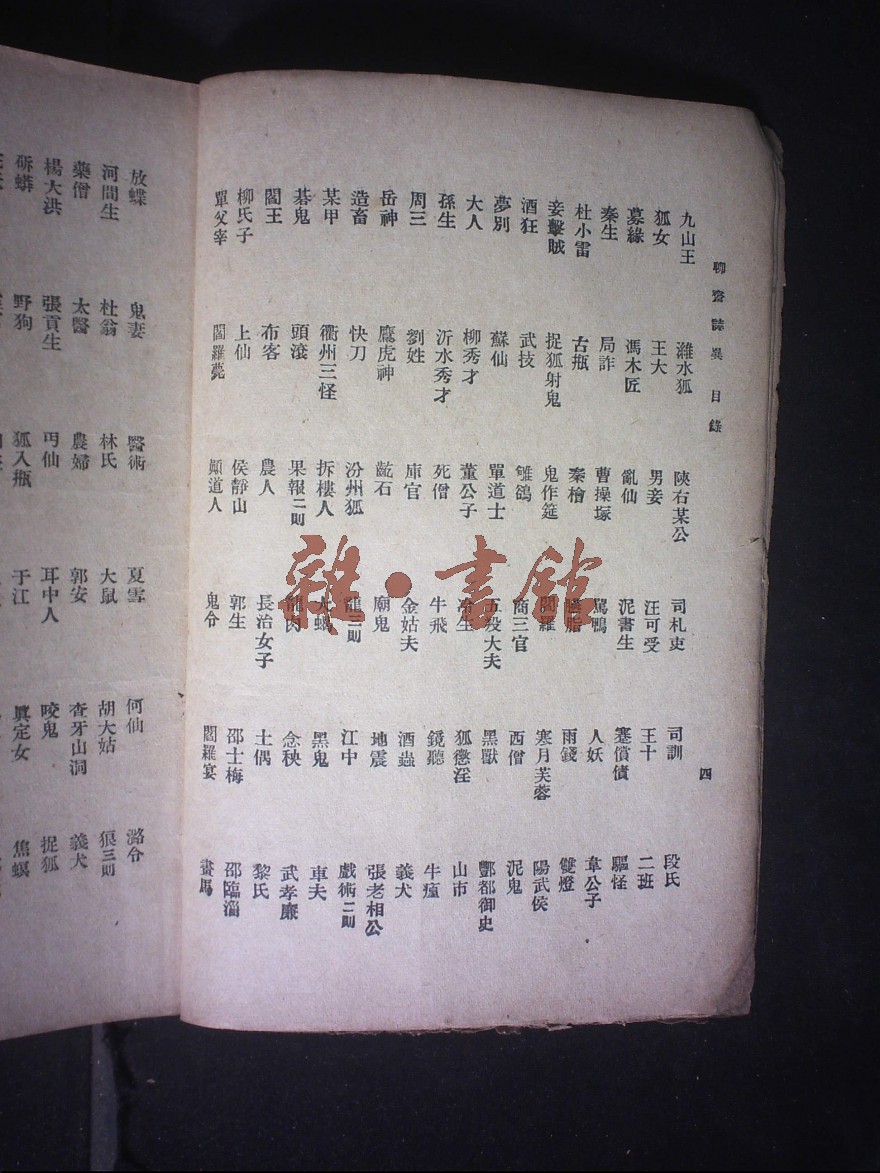 聊齋誌異 目錄 四
九山王 濰水狐 陝右某公 司札吏 司訓 段氏
狐女 王大 男妾 汪可受 王十 二班
募緣 馮木匠 亂仙 泥書生 蹇償債 驅怪
秦生 局詐 曹操塚 罵鴨 人妖 韋公子
杜小雷 古瓶 秦檜 雨錢 雙燈
妾擊賊 捉狐射鬼 鬼作筵 閻羅 寒月芙蓉 陽武侯
酒狂 武技 雊鵒 商三官 西僧 泥鬼
夢別 蘇仙 單道士 五羖大夫 黑獸 酆都御史
大人 柳秀才 董公子 冷生 狐懲淫 山市
孫生 沂水秀才 死僧 牛飛 鏡聽 牛癀
周三 劉姓 庫官 金姑夫 酒蟲 義犬
岳神 鷹虎神 齕石 廟鬼 地震 張老相公
造畜 快刀 汾州狐 龍三則 江中 戲術二則
某甲 衢州三怪 拆樓人 大蝎 黑鬼 車夫
碁鬼 頭滾 果報二則 龍肉 念秧 武孝廉
閻王 布客 農人 長治女子 土偶 黎氏
柳氏子 上仙 侯靜山 郭生 邵士梅 邵臨淄
單父宰 閻羅薨 顛道人 鬼令 閻羅宴 畫馬
放蝶 鬼妻 醫術 夏雪 何仙 潞令
河間生 杜翁 林氏 大鼠 胡大姑 狼三則
藥僧 太醫 農婦 郭安 查牙山洞 義犬
楊大洪 張貢生 丐仙 耳中人 咬鬼 捉狐
斫蟒 野狗 狐入瓶 于江 眞定女 焦螟
雜·書館